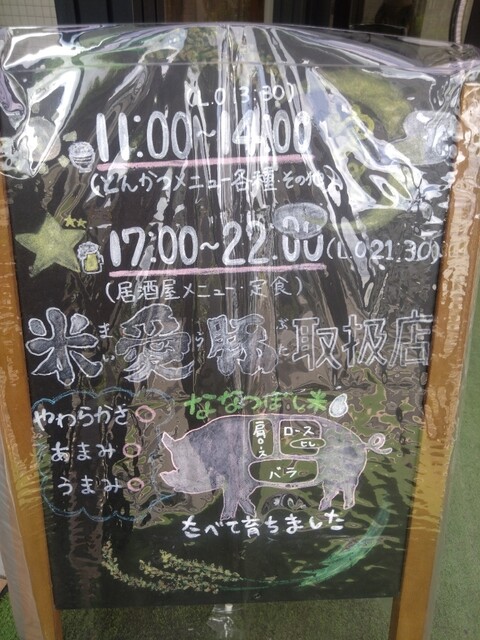 (L.O 13:30)
11:00~14:00
(とんかつメニュー各種 その他)
17:00~22:00 (L.O 21:30)
(居酒屋メニュー・定食)
米愛豚取扱店
まい う ぶた
やわらかさ○
あまみ○
うまみ○
ななつぼし米
肩ロース
ロース
ヒレ
バラ
たべて育ちました